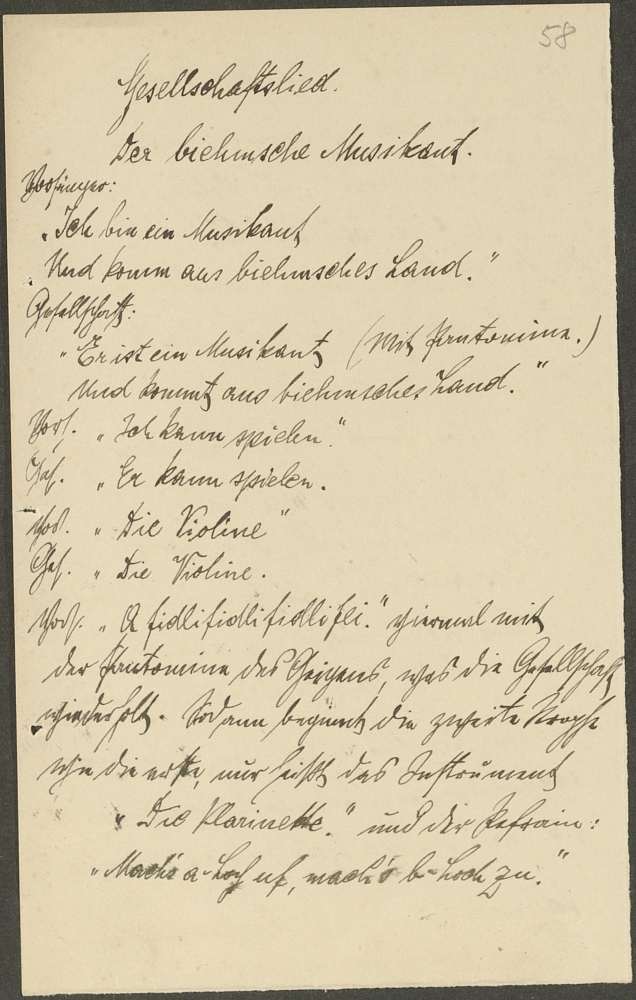 58
Gesellschaftslied.
Der biehmsche Musikant.
Vorsänger:
"Ich bin ein Musikant
Und komm aus biehmsches Land."
Gesellschaft:
"Er ist ein Musikant (Mit Pantomime.)
Und kommt aus biehmsches Land."
Vors. "Ich kann spielen."
Ges. "Er kann spielen.
Vors. "Die Violine"
Ges. "Die Violine.
Vors. "A fidlifidlifidlifli." viermal mit
der Pantomime des Geigens, was die Gesellschaft
wiederholt. Sodann beginnt die zweite Strophe
wie die erste, nur heißt das Instrument
"Die Klarinette." und der Refrain:
"Mach's a-Loch uf, mach's b-Loch zu."